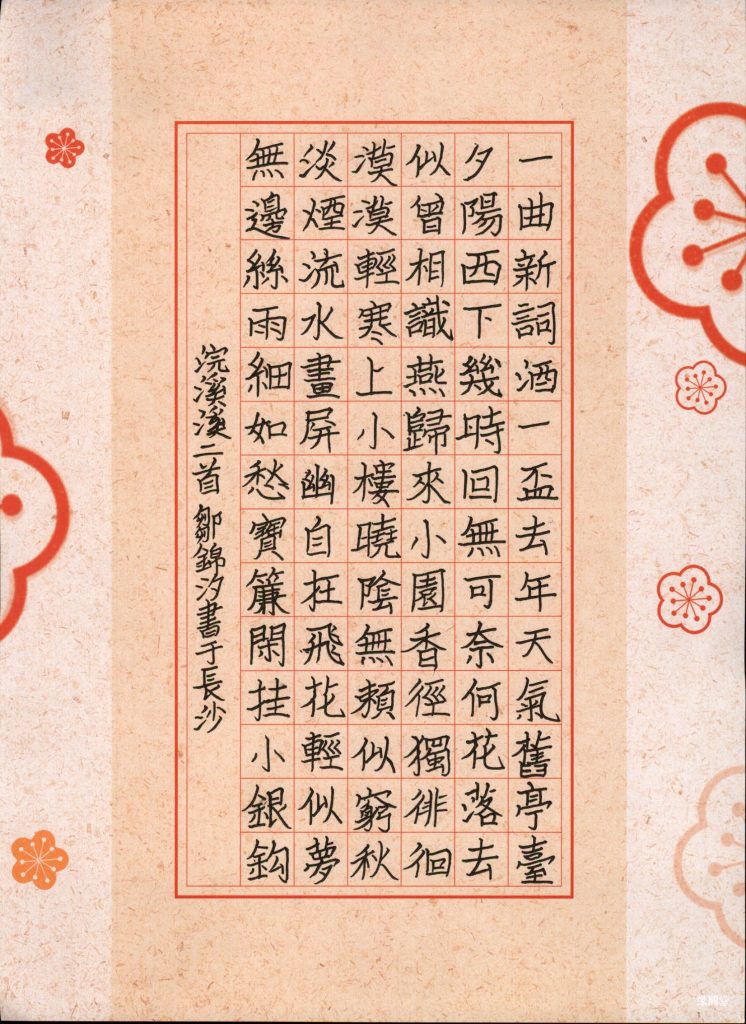 一曲新詞酒一盃去年天氣舊亭臺
夕陽西下幾時回無可奈何花落去
似曾相識燕歸來小園香徑獨徘徊
漠漠輕寒上小樓曉陰無賴似窮秋
淡煙流水畫屏幽自在飛花輕似夢
無邊絲雨細如愁寶簾閑挂小銀鈎
浣溪溪二首 鄒錦汐書于長沙